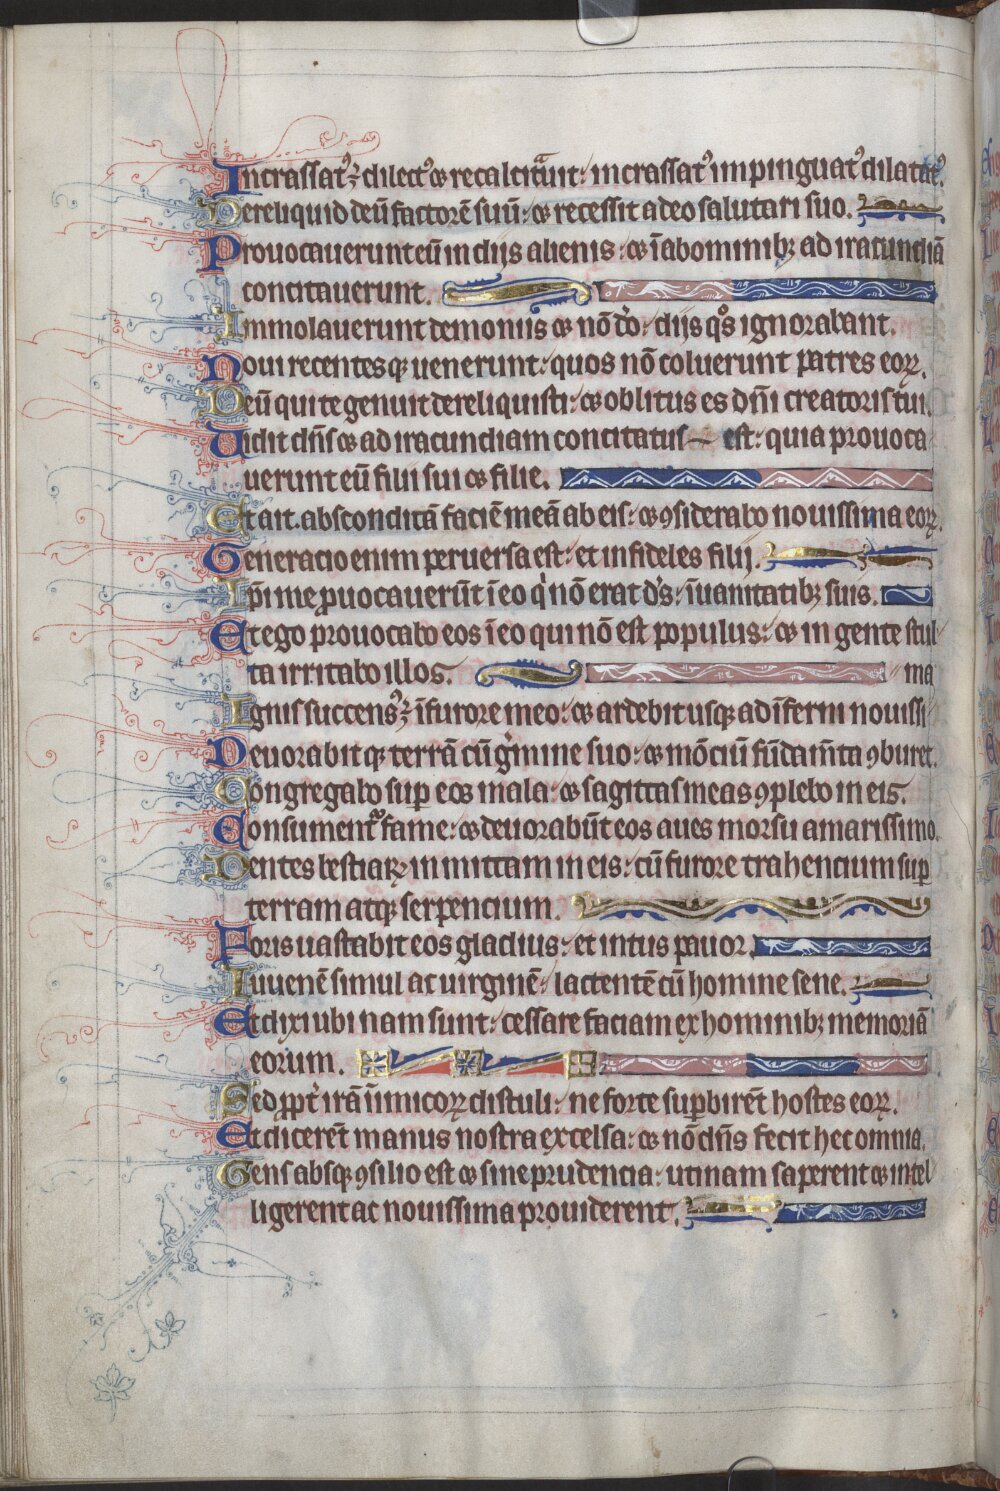 Incrassat᷒ ꝫ dilect᷒ ⁊ recalcitᷓuit: incrassat᷒ impinguat᷒ dilatat᷒.
Dereliquid deū factorē suū: ⁊ recessit a deo salutari suo.
Prouocauerunt eū in diis alienis: ⁊ ī abominibꝫ ad iracundiā
concitauerunt.
Immolauerunt demoniis ⁊ nō dō: diis qͦs ignorabant.
Noui recentesqꝫ uenerunt: quos nō coluerunt patres eoꝝ.
Deū qui te genuit dereliquisti: ⁊ oblitus es dn̄i creatoris tui.
Uidit dn̄s ⁊ ad iracundiam concitatus est: quia prouoca
uerunt eū filii sui ⁊ filie.
Et ait. abscondā faciē meā ab eis: ⁊ ꝯsiderabo nouissima eoꝝ.
Generacio enim peruersa est: et infideles filij.
Ip̄i me ꝓuocauerūt ī eo qͥ nō erat dʼs: ī uanitatibꝫ suis.
Et ego prouocabo eos ī eo qui nō est populus: ⁊ in gente stul
ta irritabo illos. ma
Ignis succens᷒ ꝫ ī furore meo: ⁊ ardebit usqꝫ ad īferni nouissi
Deuorabitqꝫ terrā cū gͥmine suo: ⁊ mōciū fūdam̄ta ꝯburet.
Congregabo suꝑ eos mala: ⁊ sagittas meas ꝯplebo in eis.
Consumentᷓ fame: ⁊ deuorabūt eos aues morsu amarissimo.
Dentes bestiaꝝ inmittam in eis: cū furore trahencium suꝑ
terram atqꝫ serpencium.
Foris uastabit eos gladius: et intus pauor.
Iuuenē simul ac uirginē: lactentē cū homine sene.
Et dixi ubi nam sunt: cessare faciam ex hominibꝫ memoriā
eorum.
Sed ꝓpt̄ irā īimicoꝝ distuli: ne forte suꝑbirēt hostes eoꝝ.
Et dicerēt manus nostra excelsa: ⁊ nō dn̄s fecit hec omnia.
Gens absqꝫ ꝯsilio est ⁊ sine prudencia: utinam saperent ⁊ intel
ligerent ac nouissima prouiderent.